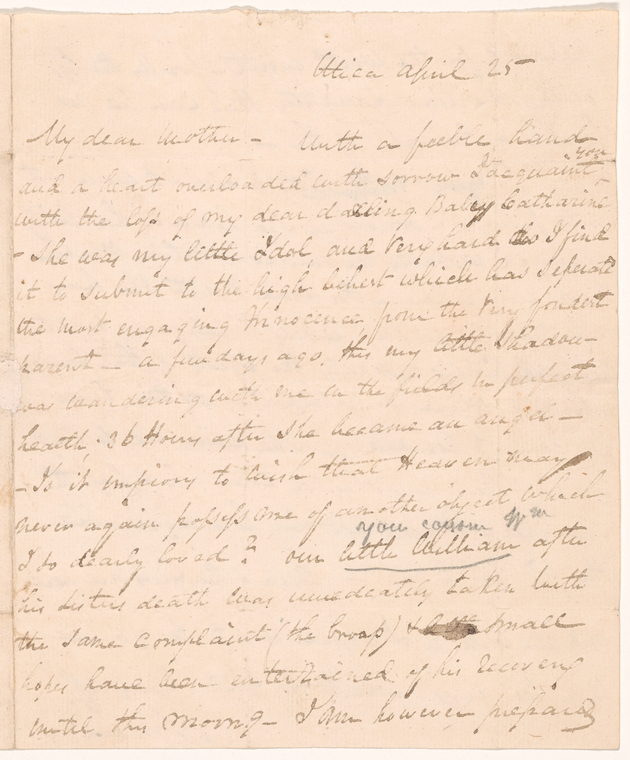 Utica April 25
My dear Mother - With a feeble hand
and a heart overloaded with sorrow I acquaint you
with the loss of my dear darling Baby Catharine
- She was my little Idol, and very hard do I find
it to submit to the high behest which has seperated
the most engaging Innocence from the very fondest
parent - a few days ago, this my little Shadow -
was wandering with me in the fields in perfect
health; 36 Hours after She became an angel -
- Is it impious to wish that Heaven may
never again possess me of another object which
your cousin Wm
I so dearly loved? our little William after
his sisters death was immediately taken with
the same complaint (the Croop) & small
hopes have been entertained of his recovery
until this morng - I am however prepared